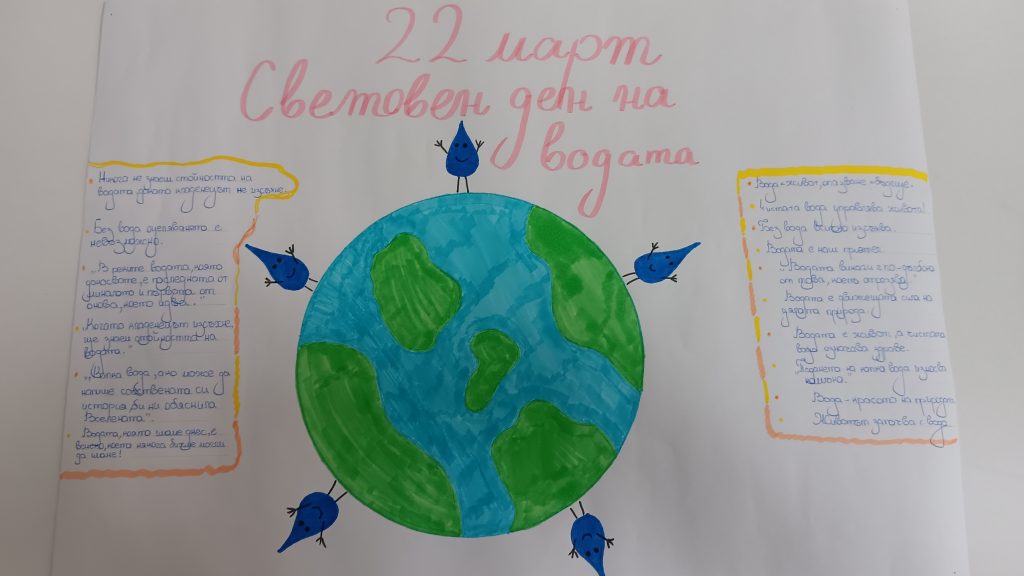 22 март
Световен ден на
водата
Никога не знаеш стойността на
водата, докато кладенецът не изсъхне.
Без вода оцеляването е
невъзможно.
„В реките водата, която
докосвате, е последната от
миналото и първата от
онова, което идва..."
Когато кладенецът изсъхне,
ще знаем стойността на
водата."
„Капка вода, ако може да
напише собствената си
история, би ни обяснила
Вселената".
Водата, която пиеш днес, е
да пиете!
Вода = живот, опазване = бъдеще.
Чистата вода управлява живота!
Без вода всичко изсъхва.
Водата е наш приятел.
„Водата винаги е по-дълбока
от това, което отразява."
Водата е движещата сила на
цялата природа.
Водата е живот, а чистата
вода означава здраве.
„Падането на капка вода износва
камъка."
Вода - красота на природата
Животът започва с вода.